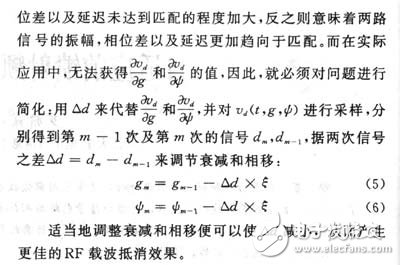 位差以及延迟未达到匹配的程度加大，反之则意味着两路
信号的振幅，相位差以及延迟更加趋向于匹配。而在实际
应用中，无法获得∂v_d/∂g 和 ∂v_d/∂ψ 的值，因此，就必须对问题进行
简化：用 Δd 来代替 ∂v_d/∂g 和 ∂v_d/∂ψ，并对 v_d(t,g,ψ) 进行采样，分
别得到第 m − 1 次及第 m 次的信号 d_m, d_{m−1}，据两次信号
之差Δd = d_m − d_{m−1} 来调节衰减和相移：
g_m = g_{m−1} − Δd × ξ (5)
ψ_m = ψ_{m−1} − Δd × ξ (6)
适当地调整衰减和相移便可以使 减小
更佳的RF 载波抵消效果。
电子发烧友